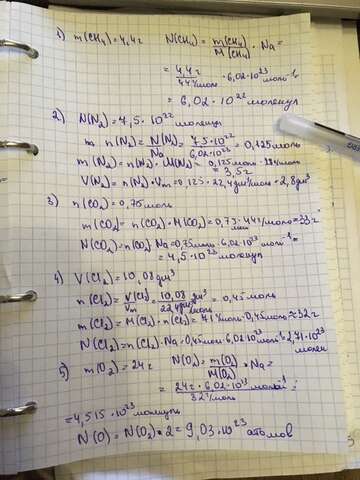 1) m(CH₄) = 4,4г N(CH₄) = m(CH₄)/M(CH₄) · Na =
= 4,4г/44г/моль · 6,02·10²³ моль⁻¹ =
= 6,02 · 10²² молекул
2) N(N₂) = 7,5 · 10²² молекул
n(N₂) = N(N₂)/Na = 7,5·10²²/6,02·10²³ = 0,125 моль
m(N₂) = n(N₂) · M(N₂) = 0,125 моль · 28г/моль = 3,5г
V(N₂) = n(N₂) · Vm = 0,125 · 22,4 дм³/моль = 2,8 дм³
3) n(CO₂) = 0,75 моль
m(CO₂) = n(CO₂) · M(CO₂) = 0,75 · 44г/моль = 33г
N(CO₂) = n(CO₂) · Na = 0,75 моль · 6,02·10²³ моль⁻¹ =
= 4,5 · 10²³ молекул
4) V(Cl₂) = 10,08 дм³
n(Cl₂) = V(Cl₂)/Vm = 10,08 дм³/22,4 дм³/моль = 0,45 моль
m(Cl₂) = M(Cl₂) · n(Cl₂) = 71г/моль · 0,45 моль ≈ 32г
N(Cl₂) = n(Cl₂) · Na = 0,45 моль · 6,02·10²³ моль⁻¹ = 2,71·10²³ молек
5) m(O₂) = 24г N(O₂) = m(O₂)/M(O₂) · Na =
= 24г · 6,02·10²³ моль⁻¹/32г/моль =
= 4,515 · 10²³ молекул
N(O) = N(O₂) · 2 = 9,03 · 10²³ атомов